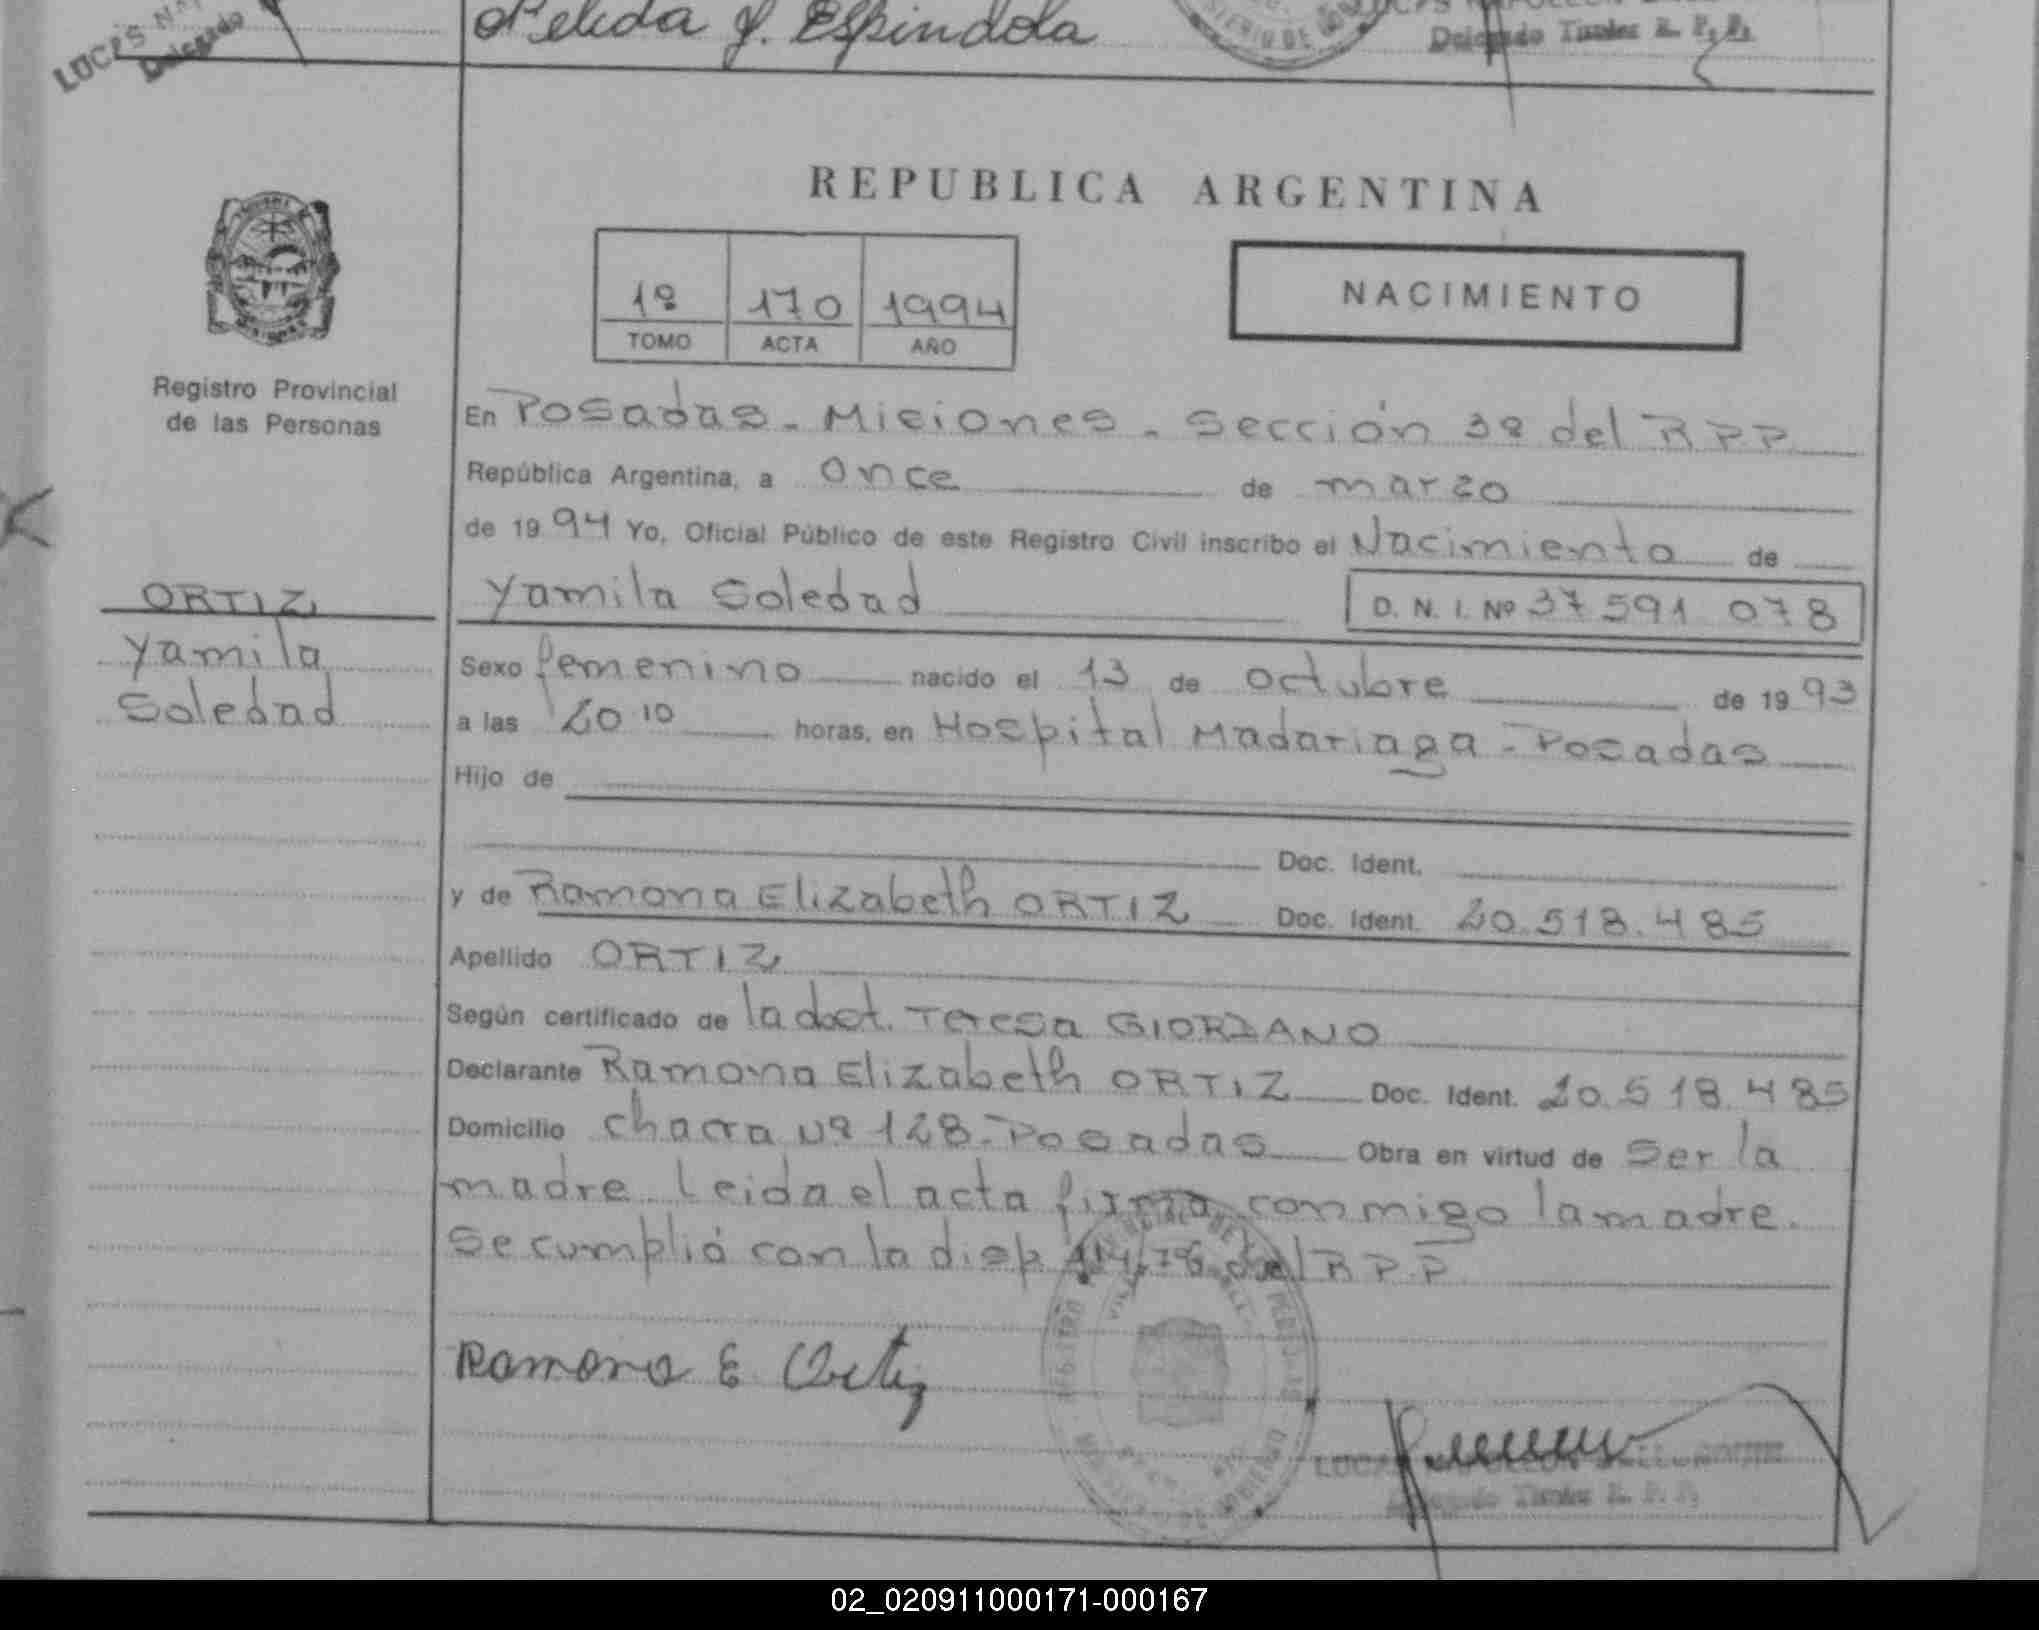 LUCAS
Delegado
Nelida J. Espindola
Delegado Titular R. P. P.
REPUBLICA ARGENTINA
1º 170 1994
TOMO ACTA AÑO
NACIMIENTO
Registro Provincial
de las Personas
En Posadas - Misiones - Sección 3º del R P P.
República Argentina, a once de marzo
de 1994 Yo, Oficial Público de este Registro Civil inscribo el Nacimiento de
Yamila Soledad D. N. I. Nº 37 591 078
ORTIZ
Yamila
Soledad
Sexo femenino nacido el 13 de octubre de 1993
a las 20 10 horas, en Hospital Madariaga - Posadas
Hijo de
Doc. Ident.
y de Ramona Elizabeth ORTIZ Doc. Ident. 20.518.485
Apellido ORTIZ
Según certificado de la obst. Teresa GIORDANO
Declarante Ramona Elizabeth ORTIZ Doc. Ident. 20.518.485
Domicilio chacra Nº 128 - Posadas Obra en virtud de ser la
madre Leida el acta firma conmigo la madre.
Se cumplió con la disp. 114/76 del R P. P.
Ramona E. Ortiz
LUCAS NAPOLEON
Delegado Titular R. P. P.
02_020911000171-000167